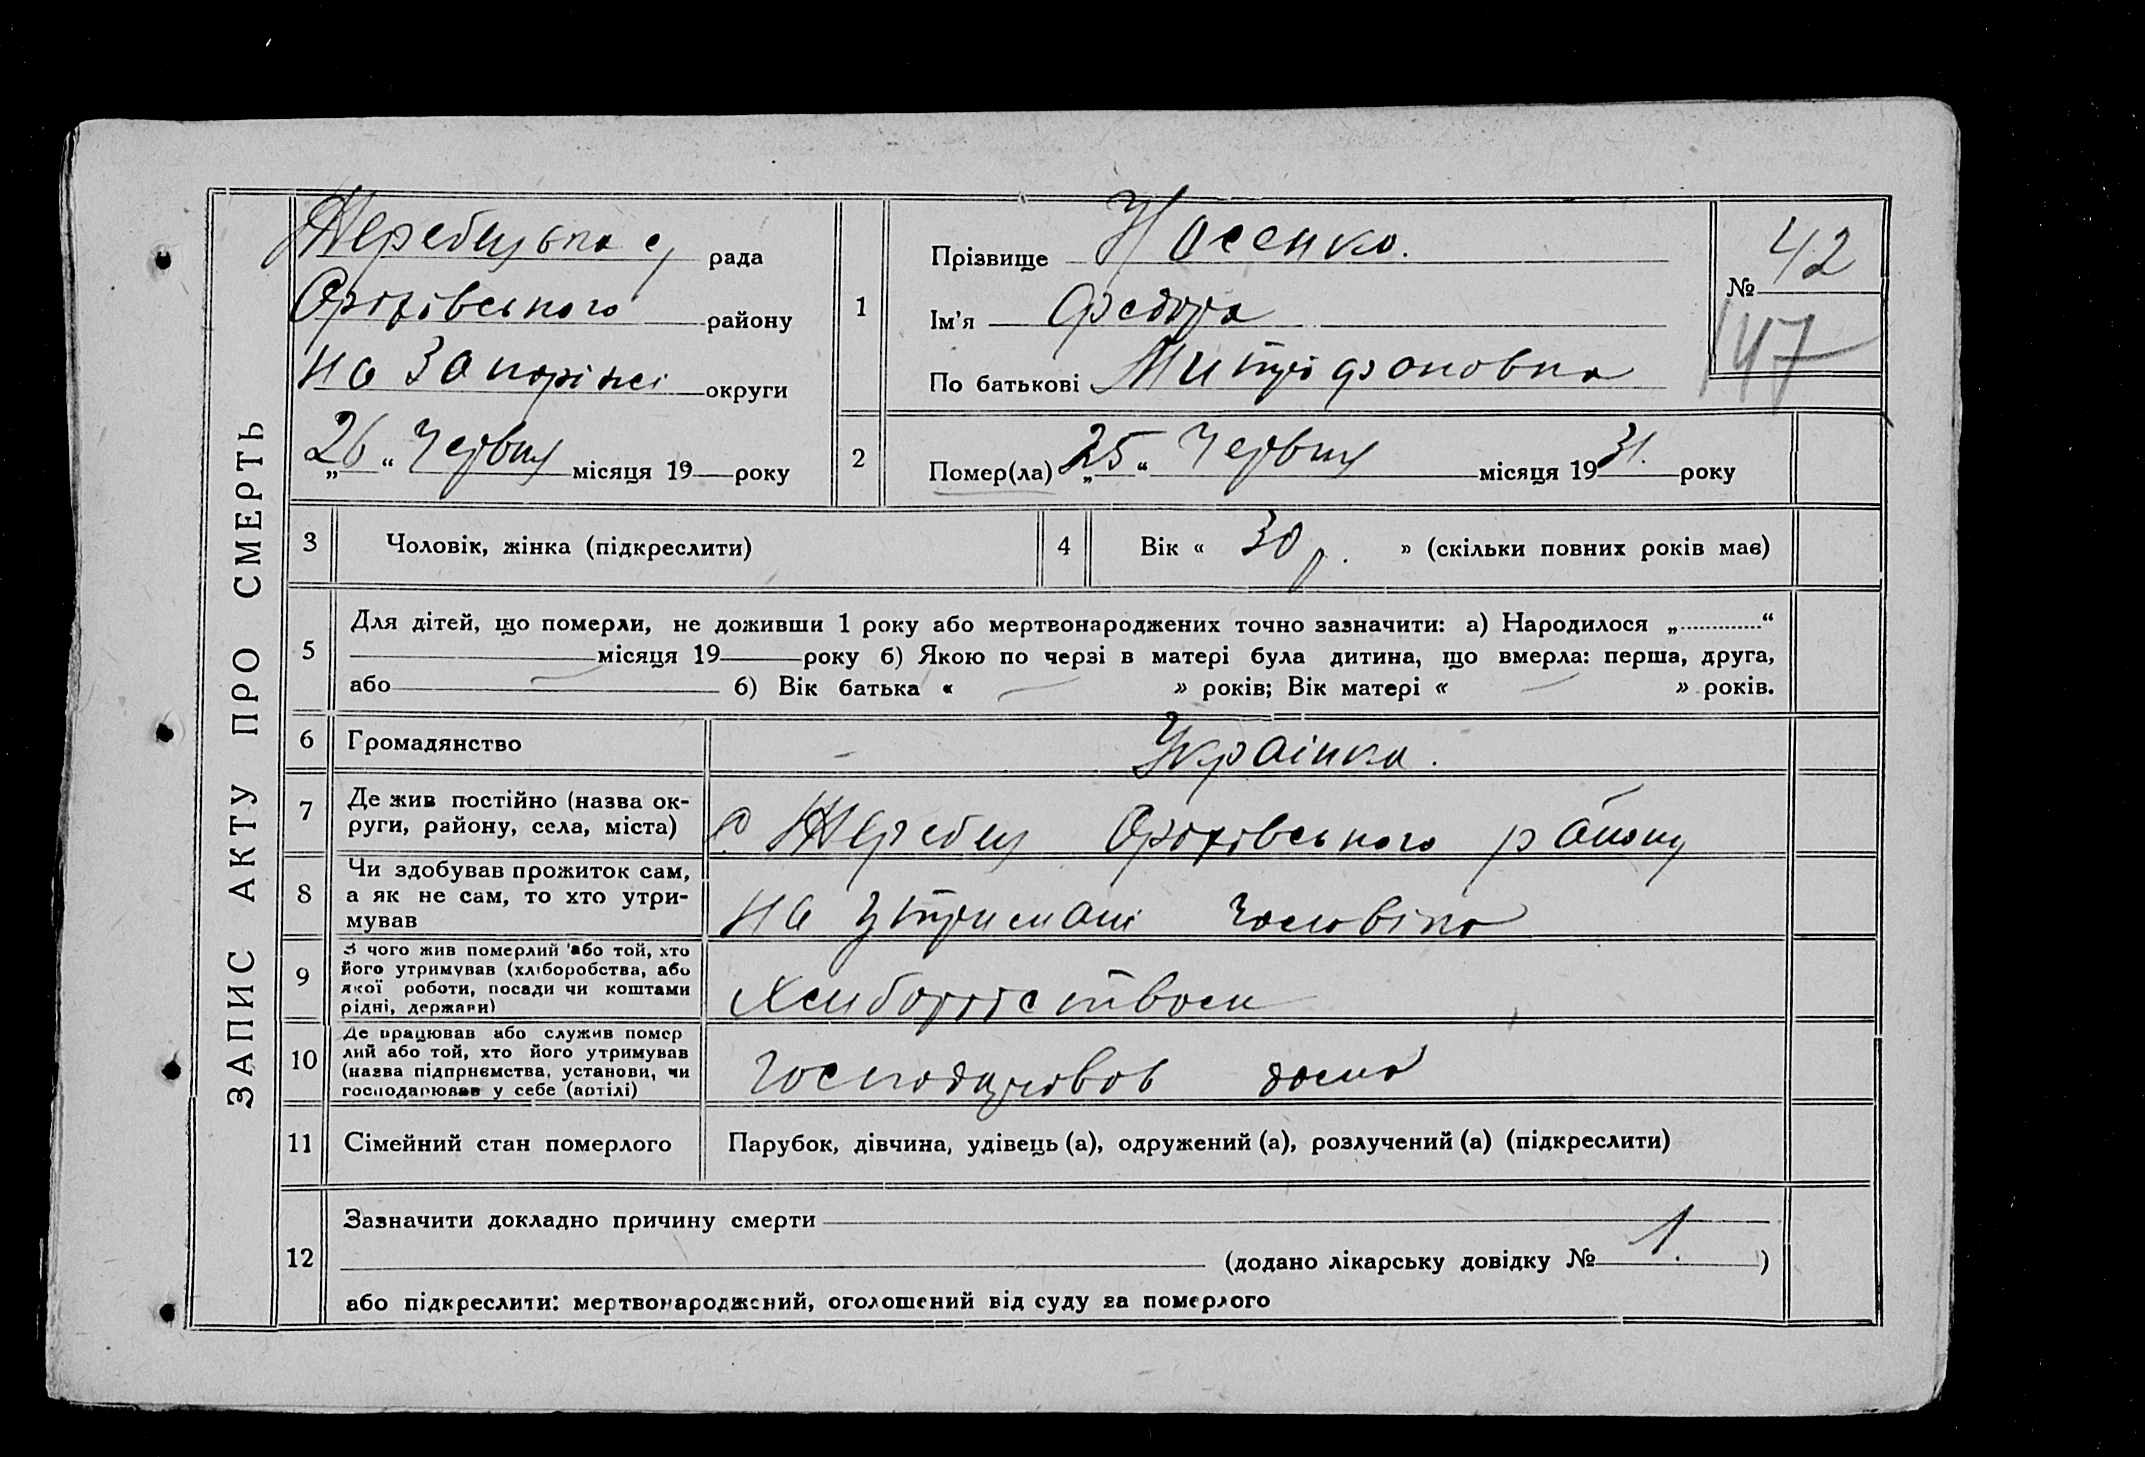 ЗАПИС АКТУ ПРО СМЕРТЬ
Жеребецька с/ рада
Оріхівського району
на Запоріжі округи
„26“ Червня місяця 19 року
1
Прізвище Носенко.
Ім'я Федора
По батькові Митрофановна
№ 42
147
2
Помер(ла) „25“ Червня місяця 1931. року
3 Чоловік, жінка (підкреслити)
4 Вік « 30 р. » (скільки повних років має)
5
Для дітей, що померли, не доживши 1 року або мертвонароджених точно зазначити: а) Народилося „ “
місяця 19 року б) Якою по черзі в матері була дитина, що вмерла: перша, друга,
або б) Вік батька « » років; Вік матері « » років.
6 Громадянство Українка.
7 Де жив постійно (назва ок-
руги, району, села, міста) с Жеребец Оріхівського району
8 Чи здобував прожиток сам,
а як не сам, то хто утри-
мував
на утримані чоловіка
9 З чого жив померлий або той, хто
його утримував (хліборобства, або
якої роботи, посади чи коштами
рідні, держави)
10 Де працював або служив помер
лий або той, хто його утримував
(назва підприємства, установи, чи
господарював у себе (артілі)
дома
11 Сімейний стан померлого Парубок, дівчина, удівець (а), одружений (а), розлучений (а) (підкреслити)
12 Зазначити докладно причину смерти
(додано лікарську довідку № 1. )
або підкреслити: мертвонароджений, оголошений від суду за померлого